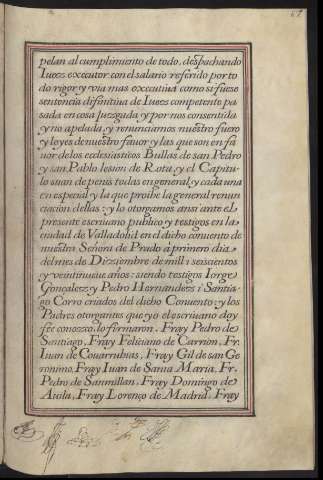 67
pelan al cumplimiento de todo, despachando
Iuez executor con el salario referido por to
do rigor y via mas executiua como si fuese
sentencia difinitiua de Iuez competente pa
sada en cosa Juzgada y por nos consentida
y no apelada, y renunciamos nuestro fuero
y leyes de nuestro fauor y las que son en fa
uor de los eclesiasticos Bullas de san Pedro
y san Pablo lesion de Rota, y el Capitu
lo suan de penis todas en general y cada una
en especial y la que proibe la general renun
ciacion dellas: y lo otorgamos ansi ante el
presente escriuano publico y testigos en la
ciudad de Valladolid en el dicho conuento de
nuestra Señora de Prado à primero dia
del mes de Diziembre de mill i seiscientos
y veintinueue años: siendo testigos Iorge
Gonçalez, y Pedro Hernandez i Santia
go Corro criados del dicho Conuento y los
Padres otorgantes que yo el escriuano doy
fee conozco, lo firmaron. Fray Pedro de
Santiago, Fray Feliciano de Carrion, Fr.
Iuan de Couarruuias, Fray Gil de san Ge
ronimo, Fray Iuan de Santa Maria, Fr.
Pedro de Sanmillan, Fray Domingo de
Auila, Fray Lorenço de Madrid, Fray